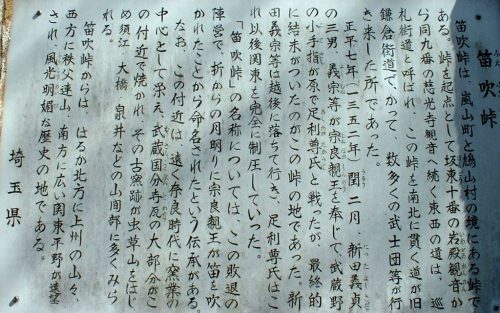 笛吹峠
笛吹峠は、嵐山町と鳩山村の境にある峠で
ある。峠を起点として坂東十番の岩殿観音か
ら同九番の慈光寺観音へ続く東西の道は、巡
礼街道と呼ばれ、この峠を南北に貫く道が旧
鎌倉街道で、かつて、数多くの武士団等が行
き来した所であった。
正平七年(一三五二年)閏二月、新田義貞
の三男 義宗等が宗良親王を奉じて、武蔵野
の小手指が原で足利尊氏と戦ったが 最終的
に結末がついたのがこの峠の地であった。新
田義宗等は越後に落ちて行き、足利尊氏はこ
れ以後関東を完全に制圧していった。
「笛吹峠」の名称については、この敗退の
陣営で、折からの月明りに宗良親王が笛を吹
かれたことから命名されたという伝承がある。
なお、この付近は、遠く奈良時代に窯業の
中心として栄え、武蔵国分寺瓦の大部分がこ
の付近で焼かれ、その古窯跡が虫草山をはじ
め須江、大橋 泉井などの山間部に多くみら
れる。
笛吹峠からは、はるか北方に上州の山々、
西方に秩父連山、南方に広い関東平野が遠望
され、風光明媚な歴史の地である。
埼玉県